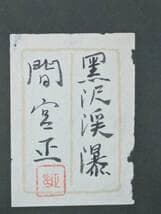 黑沢渓瀑
間宮正